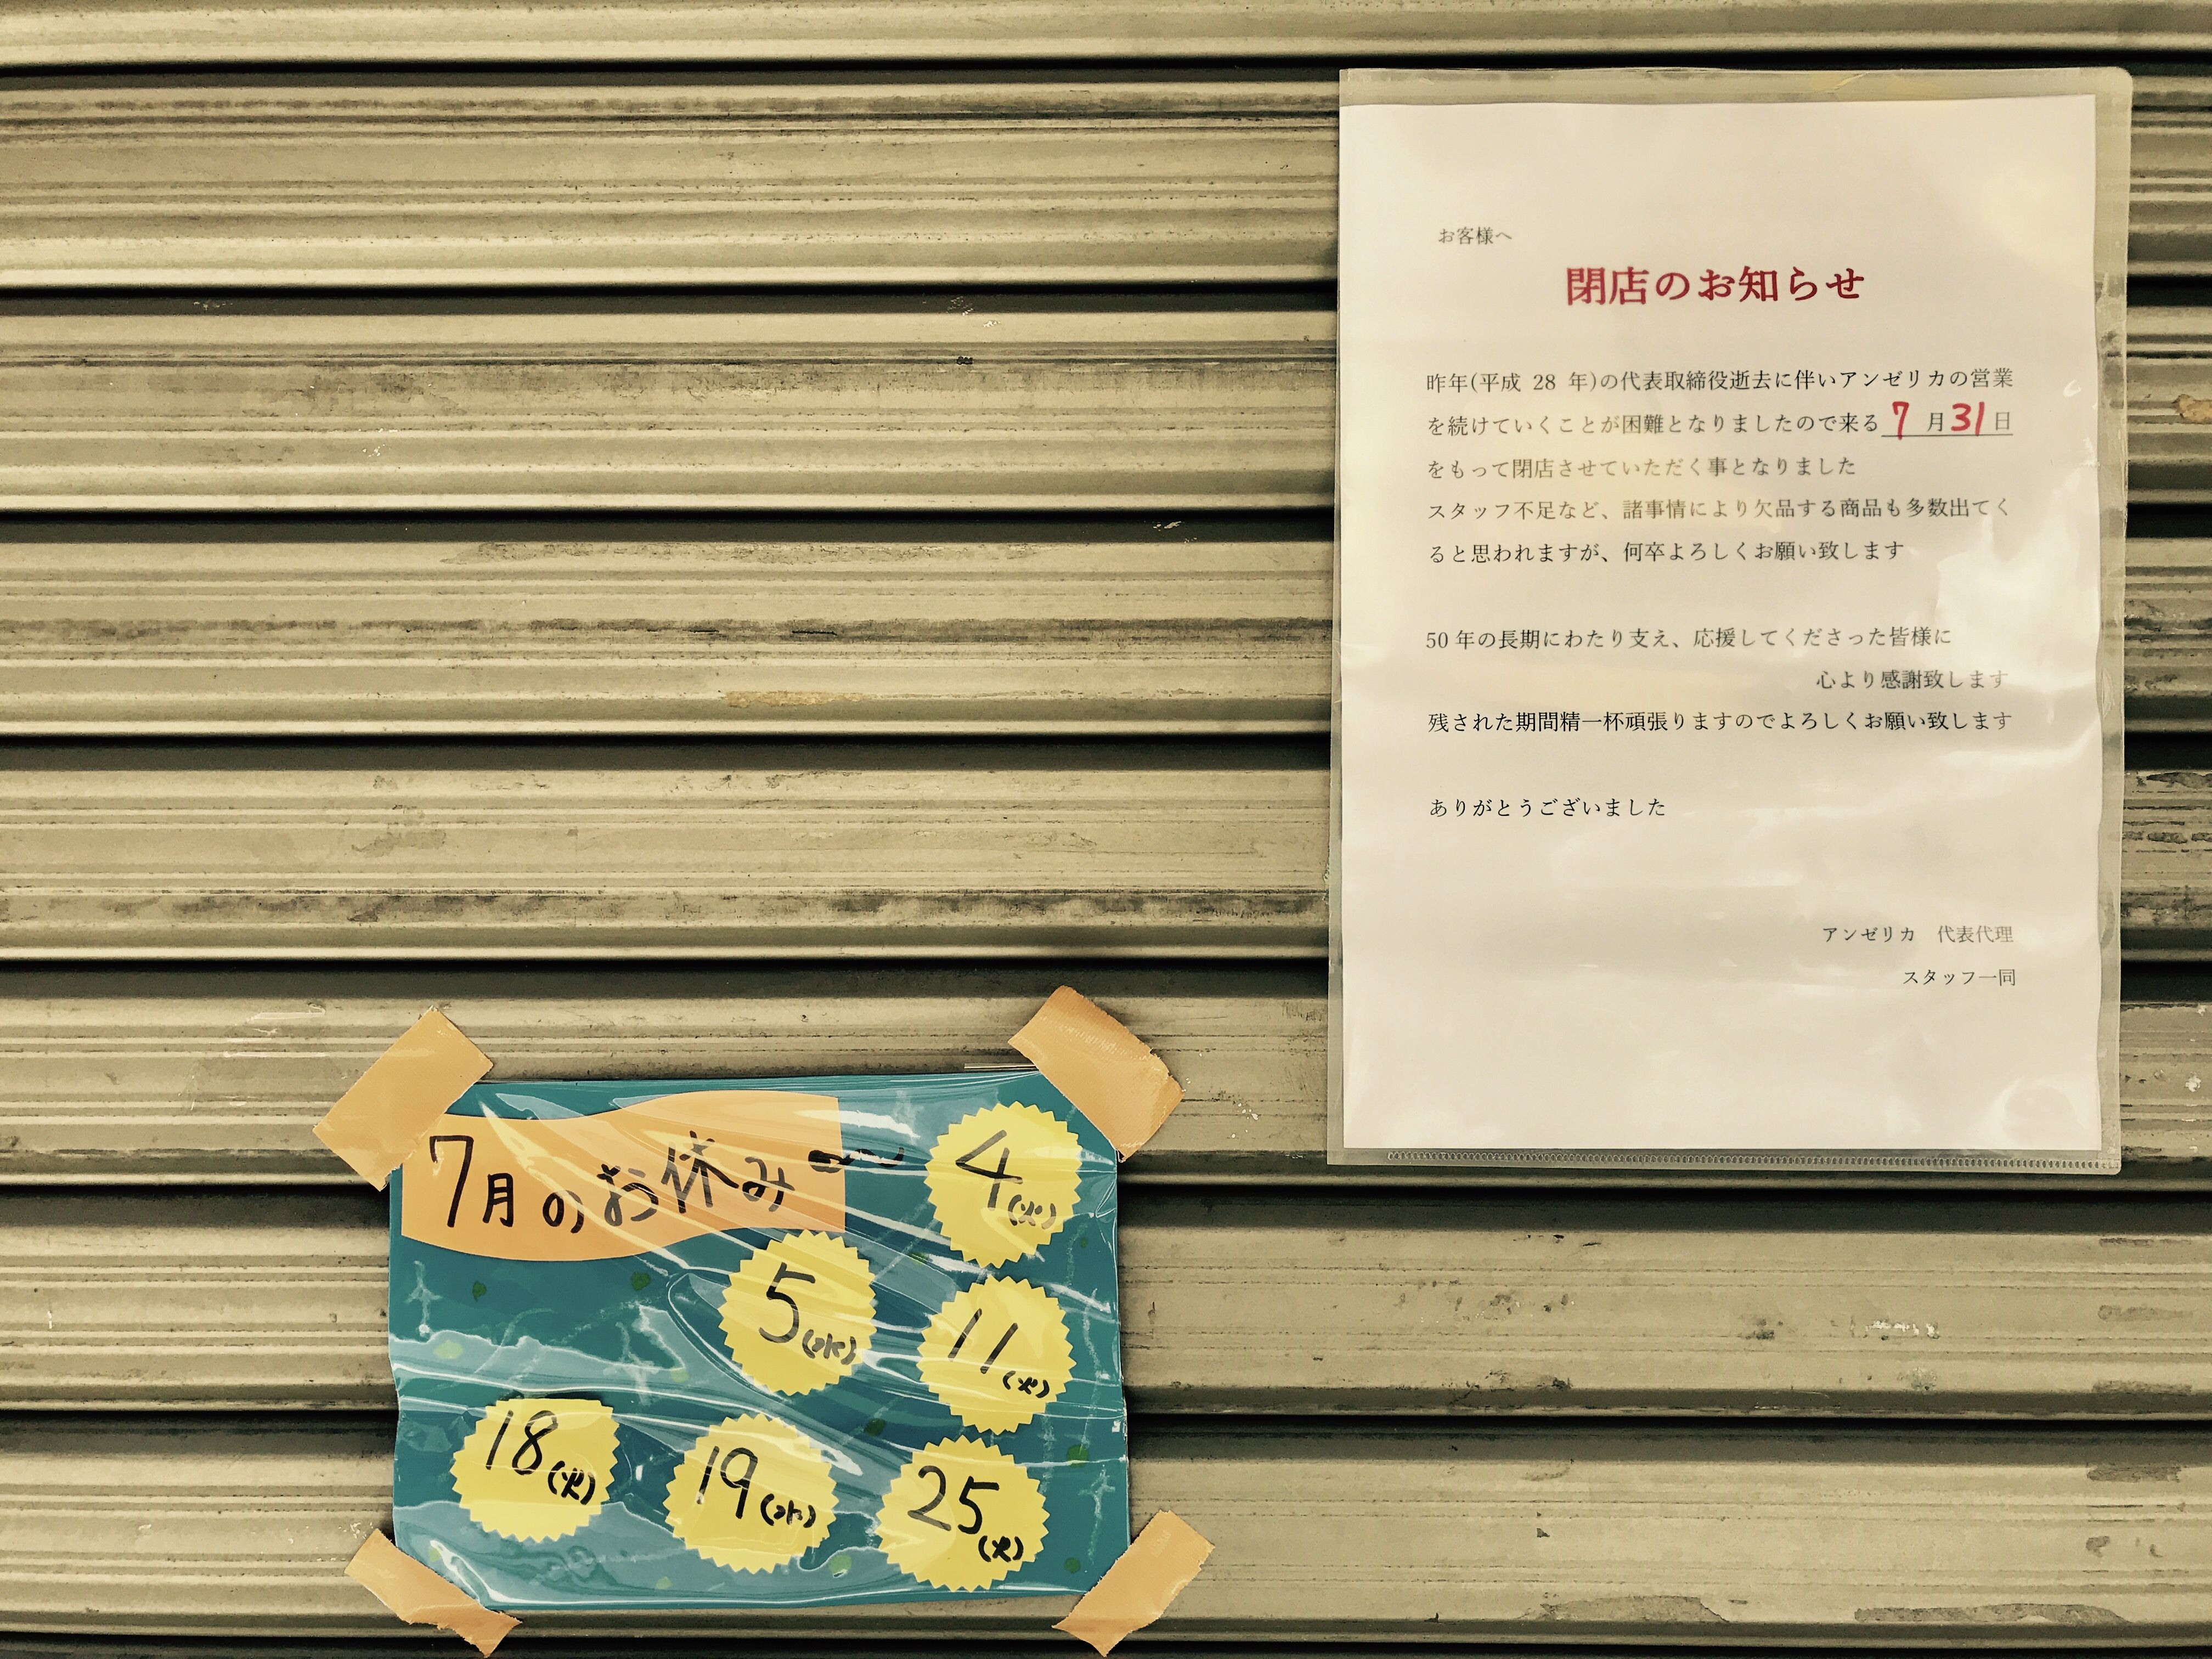 お客様へ
閉店のお知らせ
昨年(平成 28 年)の代表取締役逝去に伴いアンゼリカの営業
を続けていくことが困難となりましたので来る 7 月31日
をもって閉店させていただく事となりました
スタッフ不足など、諸事情により欠品する商品も多数出てく
ると思われますが、何卒よろしくお願い致します
50 年の長期にわたり支え、応援してくださった皆様に
心より感謝致します
残された期間精一杯頑張りますのでよろしくお願い致します
ありがとうございました
アンゼリカ 代表代理
スタッフ一同
7月のお休み
4(火)
5(水)
11(火)
18(火)
19(水)
25(火)